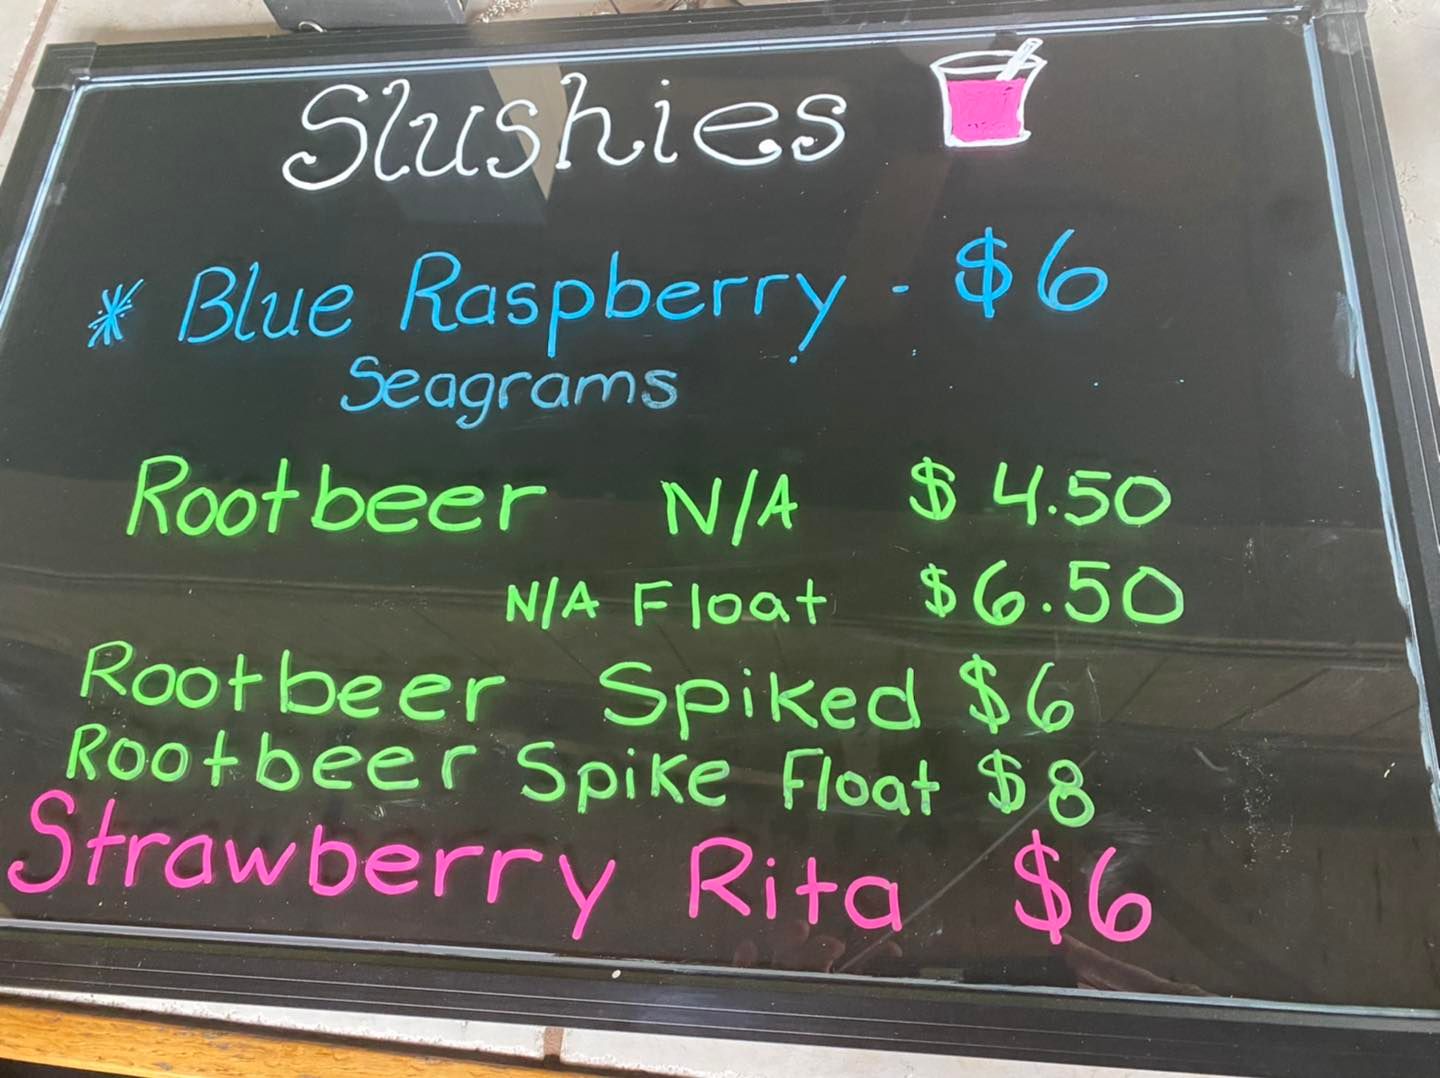 Slushies
* Blue Raspberry - $6
Seagrams
Rootbeer N/A $4.50
N/A Float $6.50
Rootbeer Spiked $6
Rootbeer Spike Float $8
Strawberry Rita $6